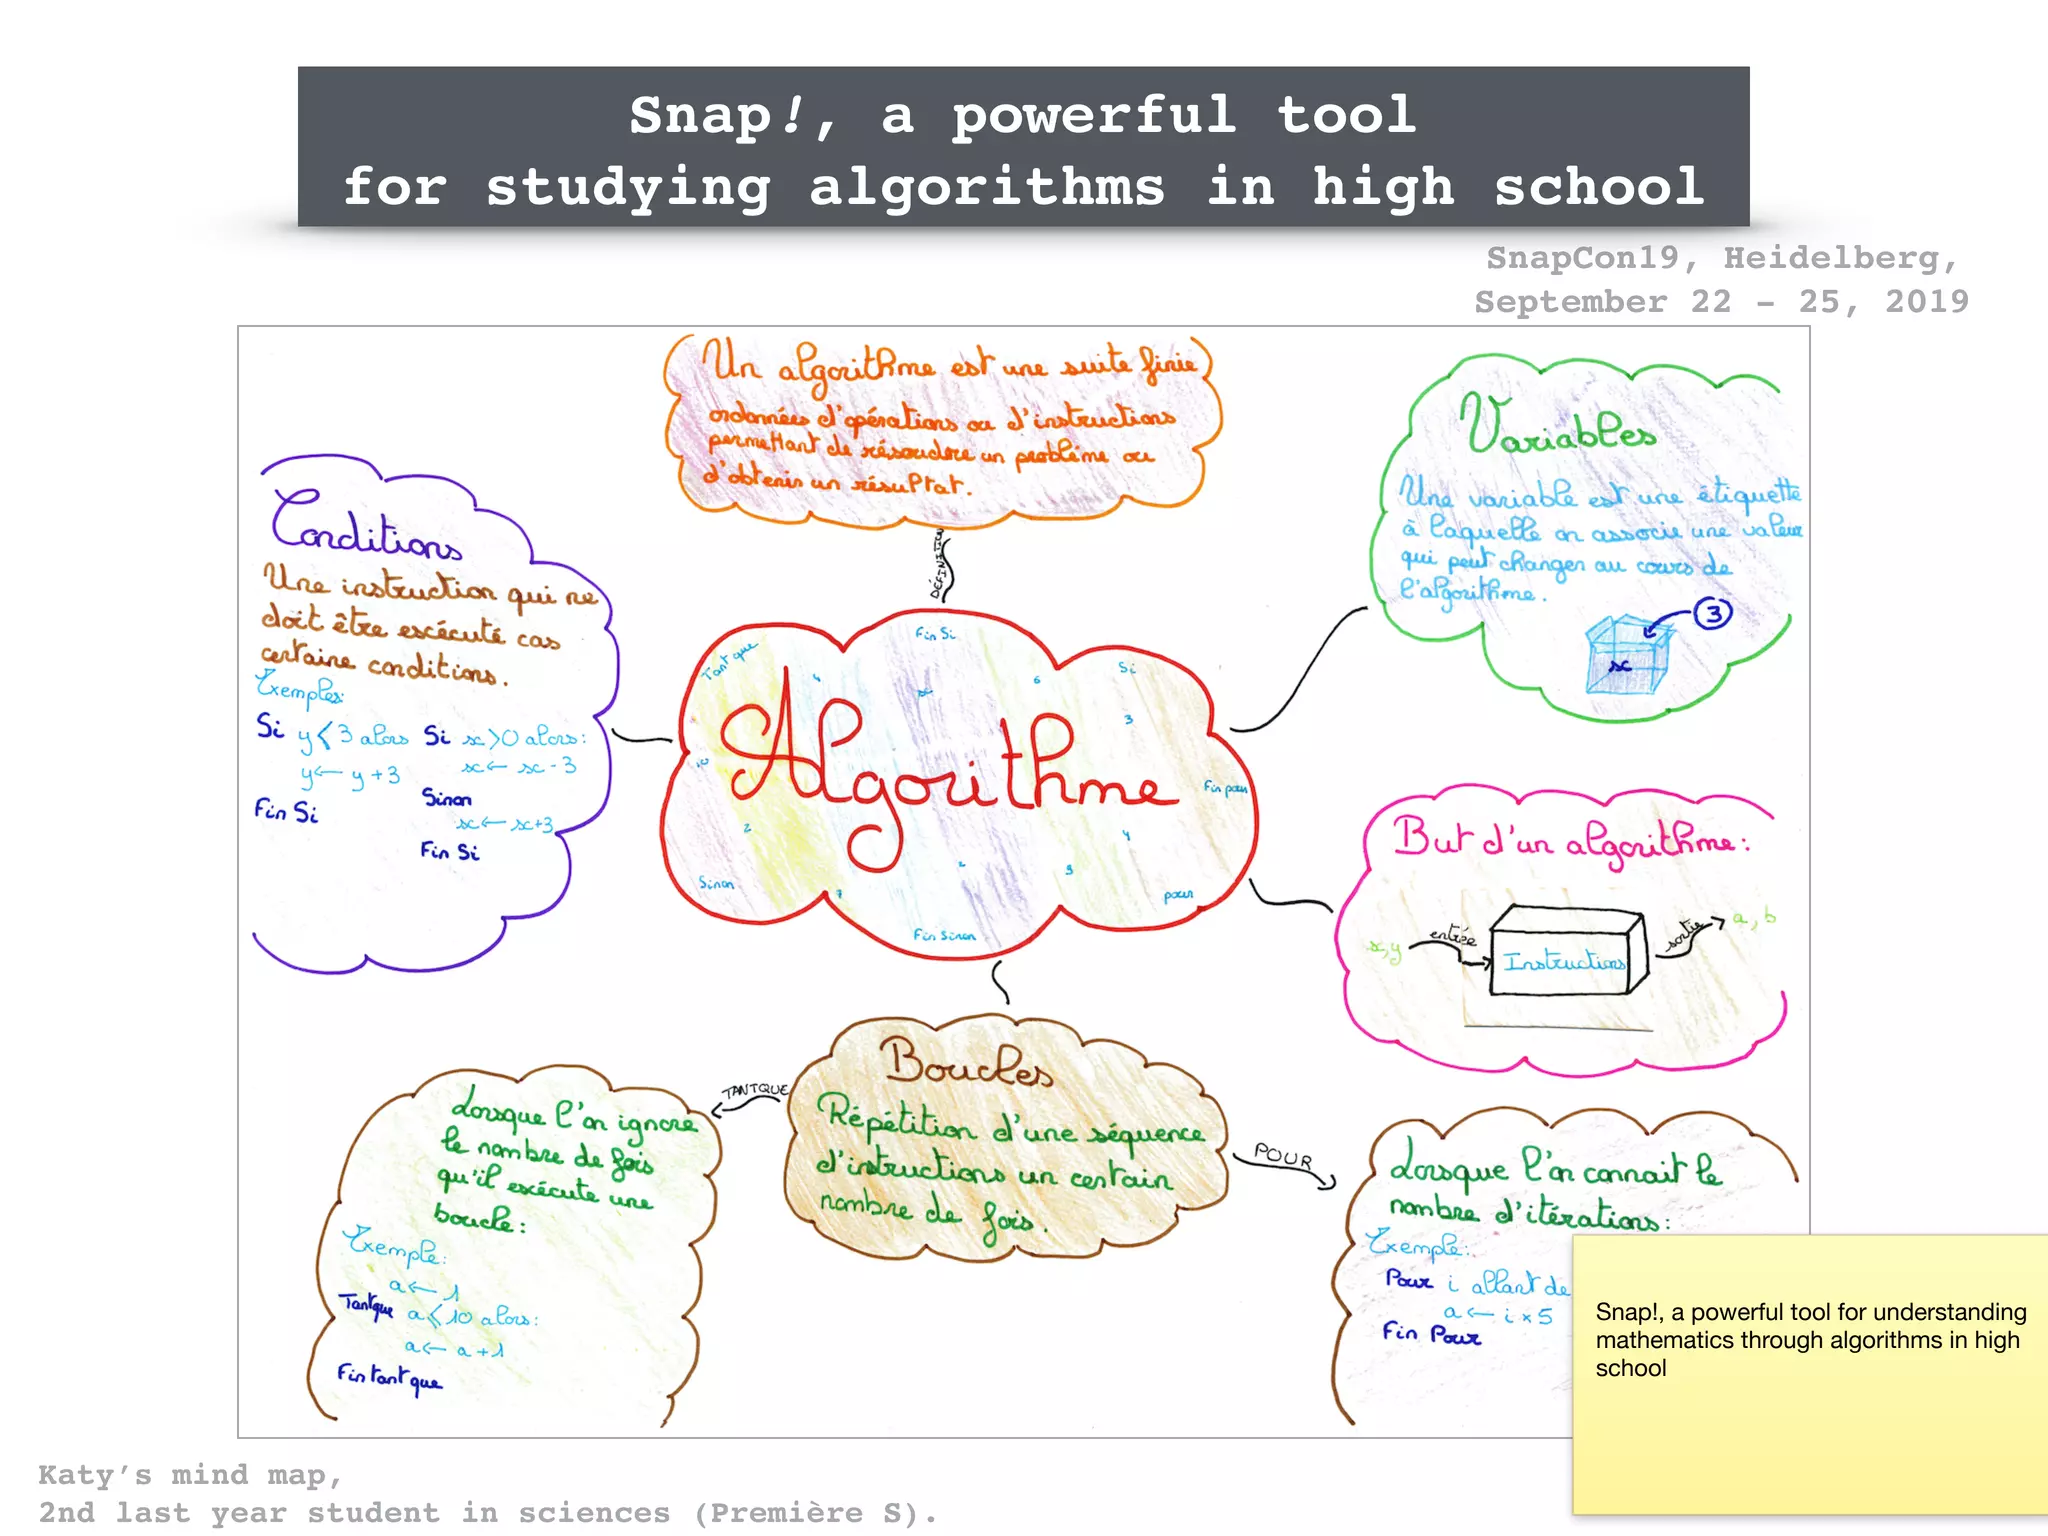 Snap!, a powerful tool
for studying algorithms in high school
SnapCon19, Heidelberg,
September 22 - 25, 2019
Un algorithme est une suite finie
ordonnées d'opérations ou d'instructions
permettant de résoudre un problème ou
d'obtenir un résultat.
DÉFINITION
Conditions
Une instruction qui ne
doit être escécuté cas
certaine conditions.
Exemples:
Si y⩽3 alors
y ← y + 3
Fin Si
Si x>0 alors:
x ← x - 3
Sinon
x ← x+3
Fin Si
Variables
Une variable est une étiquette
à laquelle on associe une valeur
qui peut changer au cours de
l'algorithme.
3
x
Algorithme
Tant que
Fin Si
Si
6
x
3
Fin pour
2
Sinon
7
Fin Sinon
pour
But d'un algorithme:
x,y
entrée
Instructions
sortie
a, b
Boucles
Répétition d'une séquence
d'instructions un certain
nombre de fois.
TANTQUE
Lorsque l'on ignore
le nombre de fois
qu'il escécute une
boucle:
Exemple:
a ← 1
Tantque a⩽10 alors:
a ← a +1
Fin tant que
POUR
Lorsque l'on connait le
nombre d'itérations:
Exemple:
Pour i allant de
a ← i × 5
Fin Pour
Snap!, a powerful tool for understanding
mathematics through algorithms in high
school
Katy's mind map,
2nd last year student in sciences (Première S).